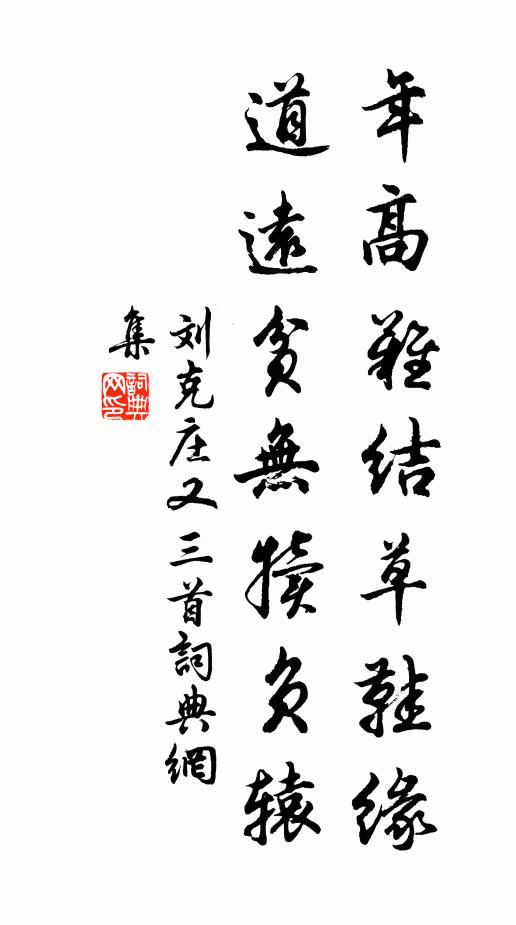 年高難结草鞋緣
道遠貧無犢負辕
刘克庄又三首詞典網
集
詞典
网印